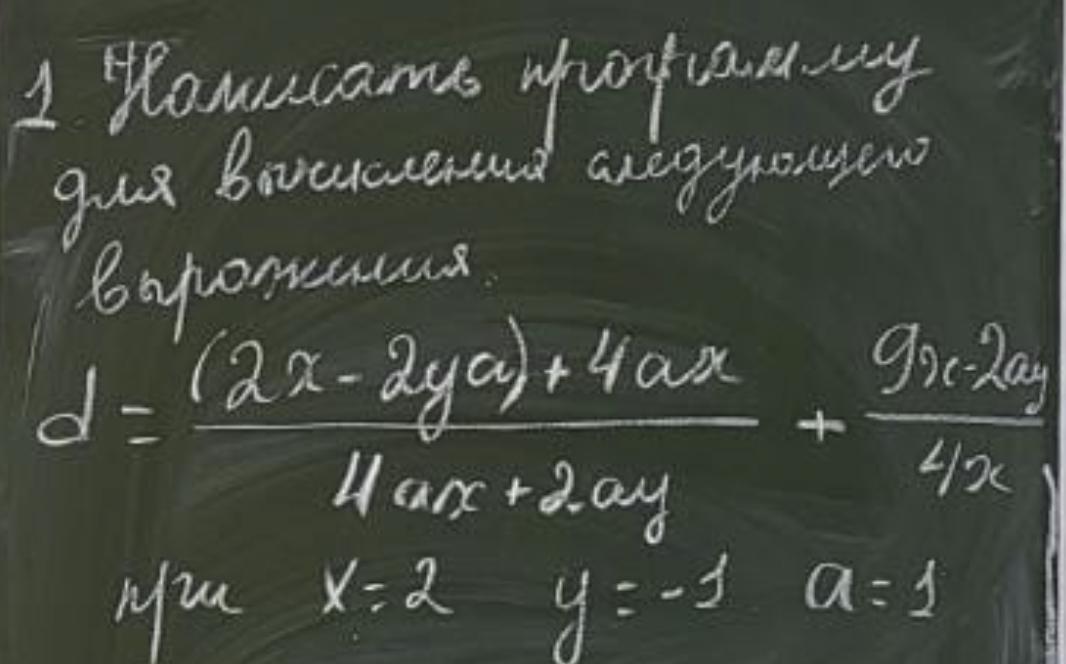 1. Написать программу
для вычисления следующего
выражения.
d = \frac{(2x - 2ya) + 4ax}{4ax + 2ay} + \frac{9x - 2ay}{4x}
при x = 2 y = -1 a = 1